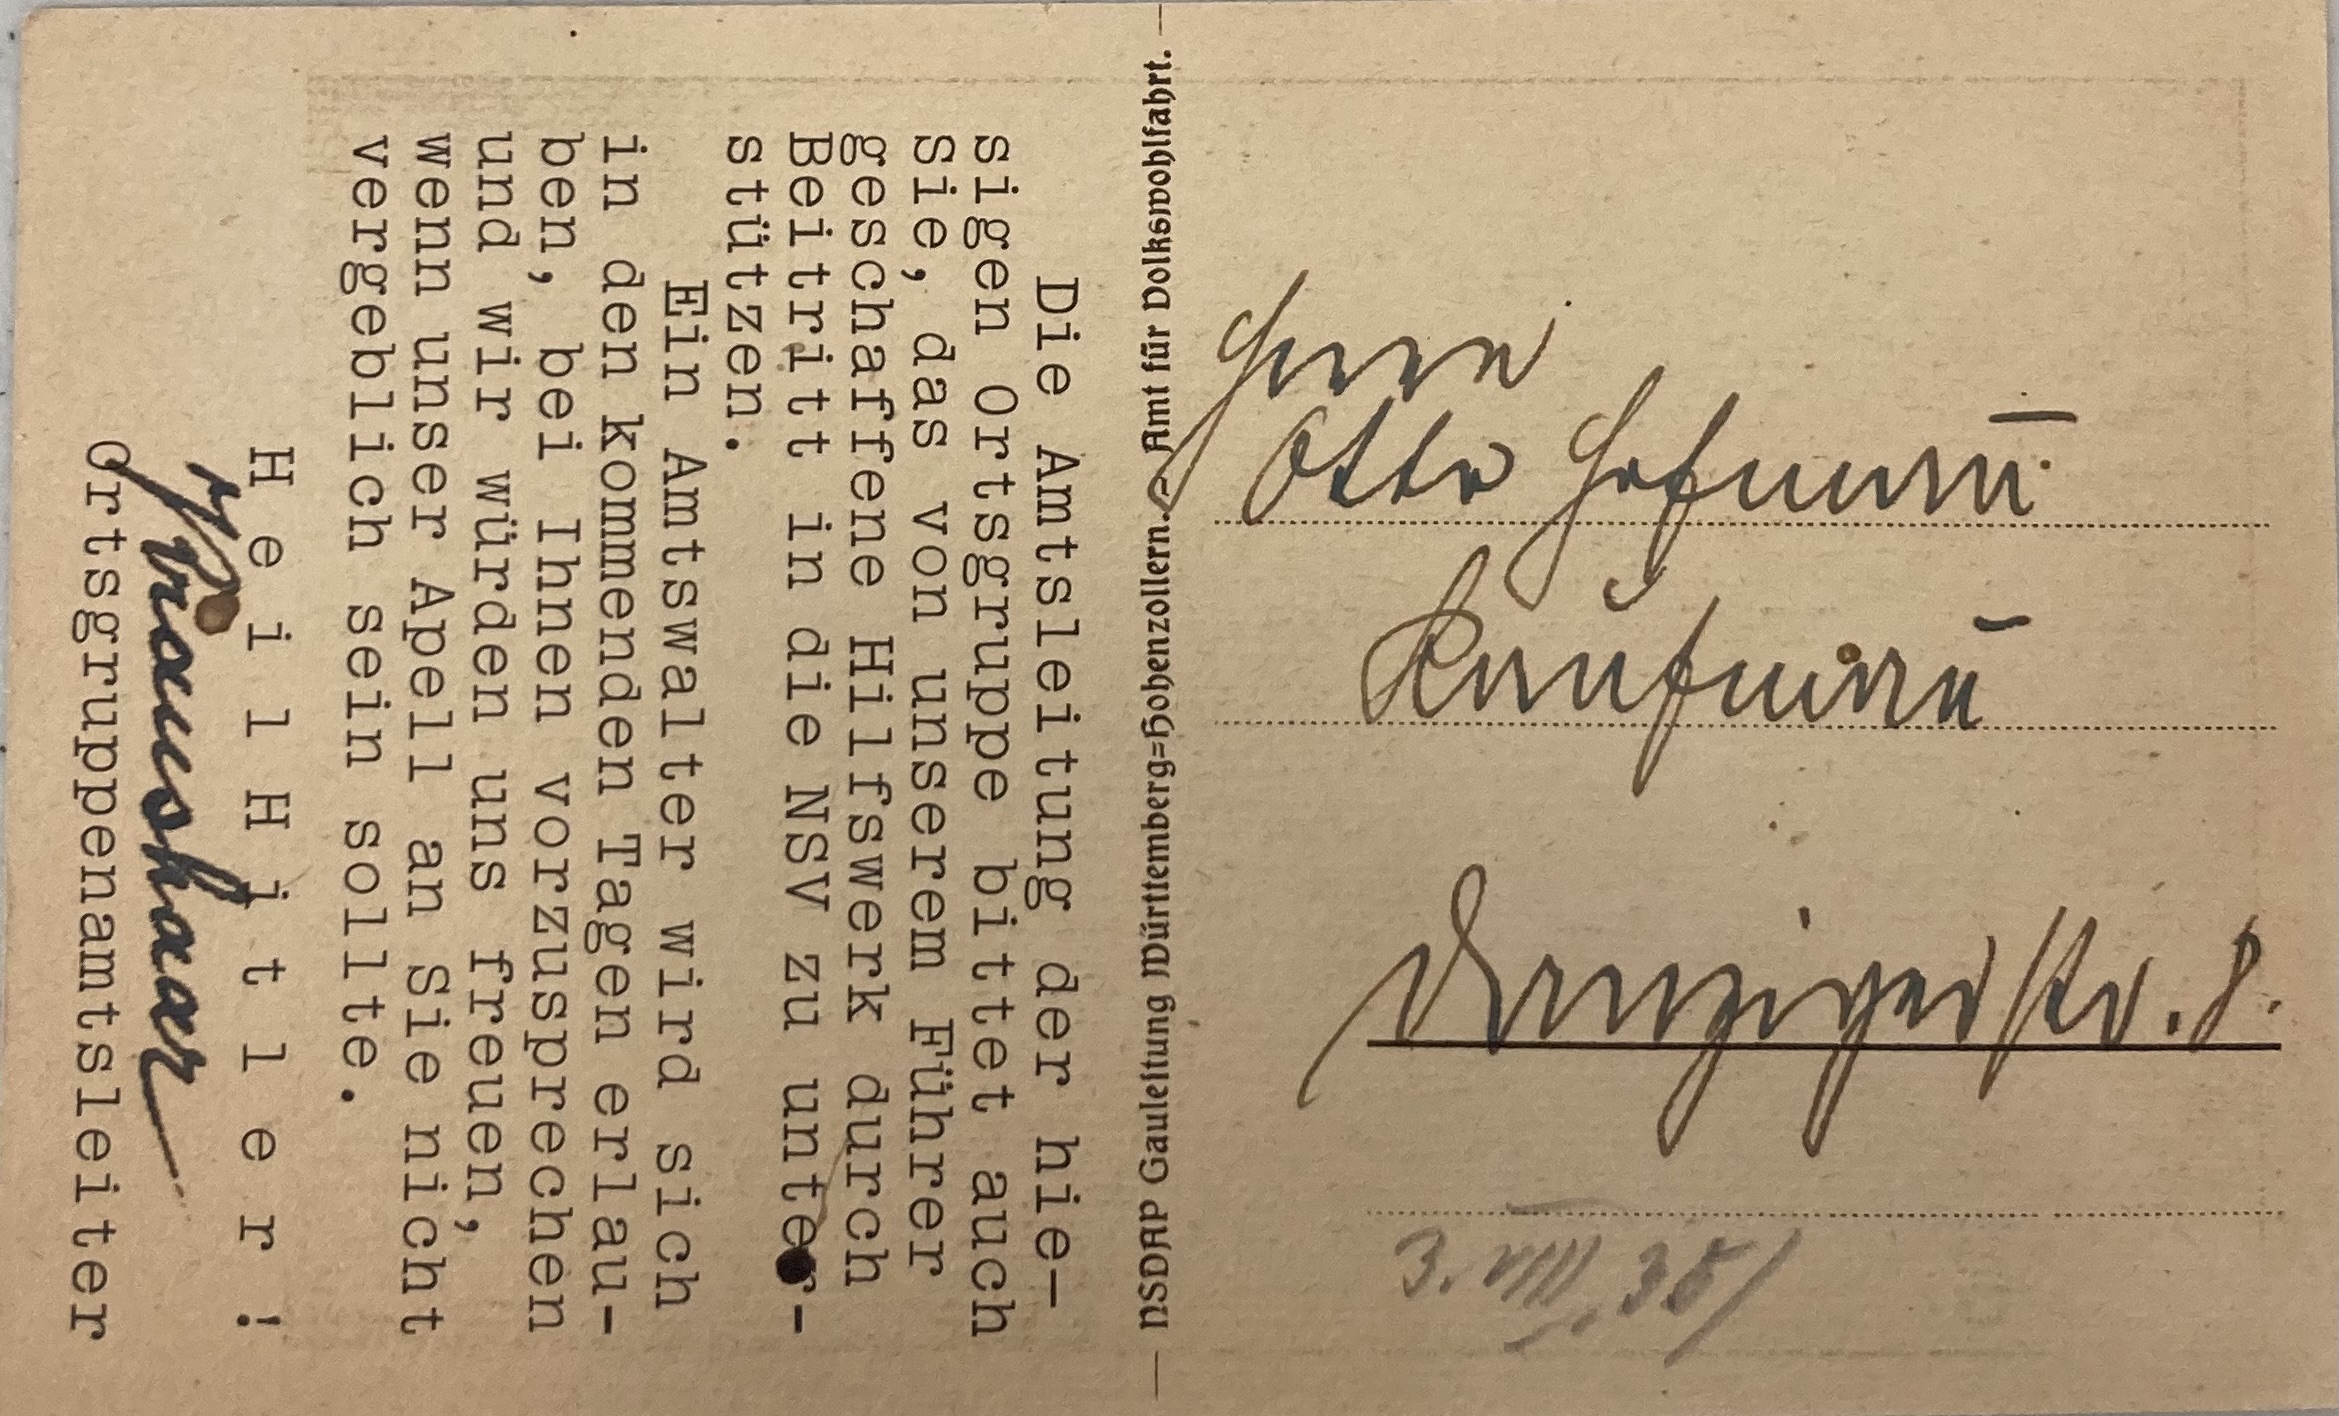 Die Amtsleitung der hie-
sigen Ortsgruppe bittet auch
Sie, das von unserem Führer
geschaffene Hilfswerk durch
Beitritt in die NSV zu unter-
stützen.
Ein Amtswalter wird sich
in den kommenden Tagen erlau-
ben, bei Ihnen vorzusprechen
und wir würden uns freuen,
wenn unser Apell an Sie nicht
vergeblich sein sollte.
H e i l H i t l e r !
Ortsgruppenamtsleiter
NSDAP Gauleitung Württemberg=Hohenzollern. — Amt für Volkswohlfahrt.
Herrn
Otto Hofmann.
Kaufmann
Danzigerstr. 8.
3. VIII. 35